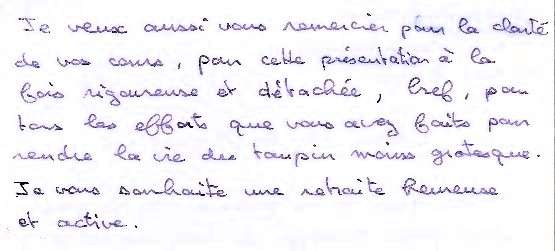 Je veux aussi vous remercier pour la clarté
de vos cours, pour cette présentation à la
fois rigoureuse et détachée, bref, pour
tous les efforts que vous avez faits pour
rendre la vie du taupin moins grotesque.
Je vous souhaite une retraite heureuse
et active.